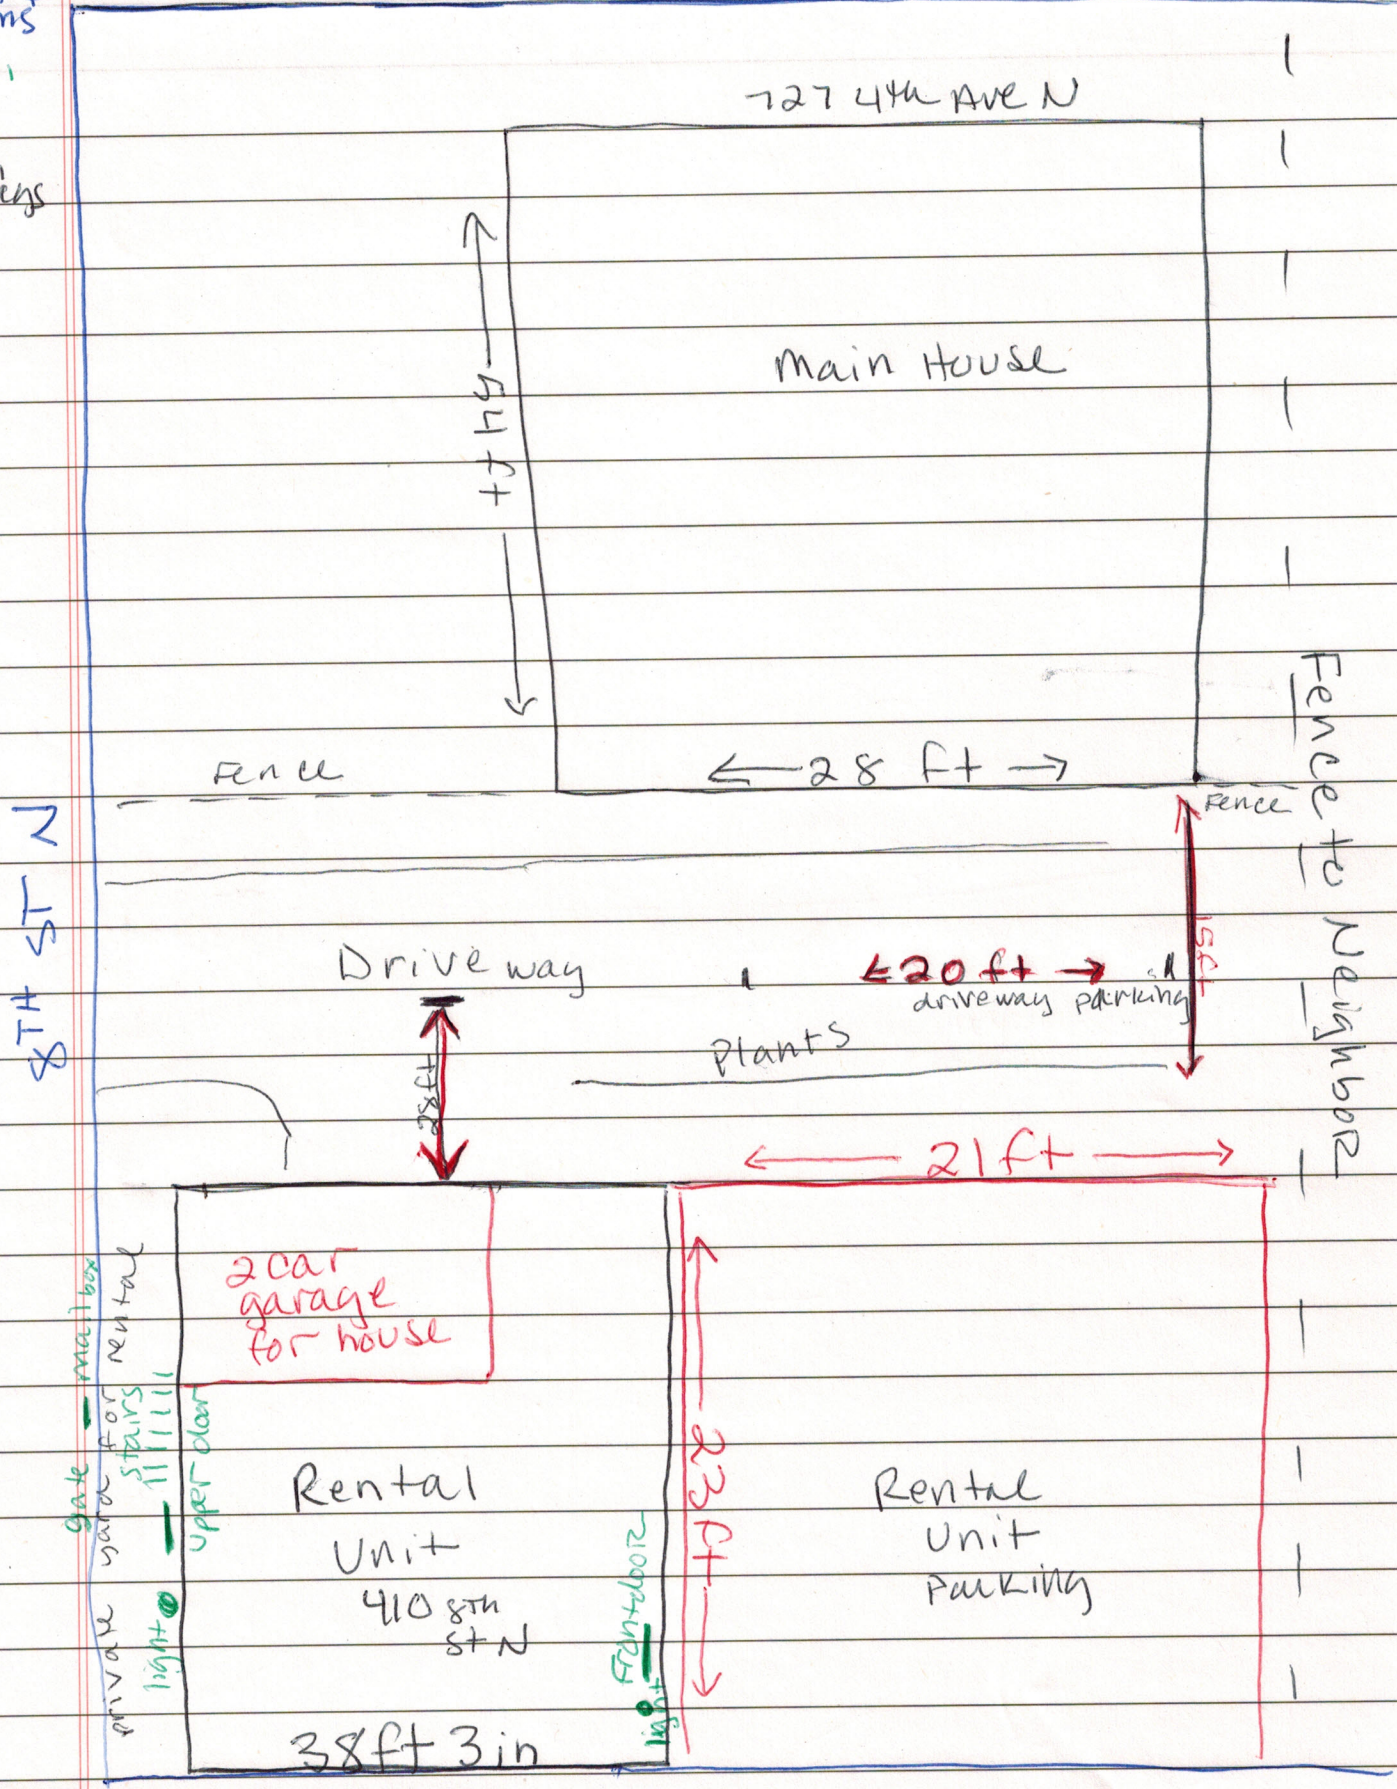 727 4th Ave N
Main House
ft
Fence
28 ft
Fence
Fence to Neighbor
8TH ST N
Driveway
20 ft
driveway parking
15ft
28ft
Plants
21ft
2 car
garage
for house
gate
mailbox
private yard for rental
stairs
upper door
light
Rental
Unit
410 8th
St N
Frontdoor
light
38ft 3in
23 ft
Rental
Unit
Parking